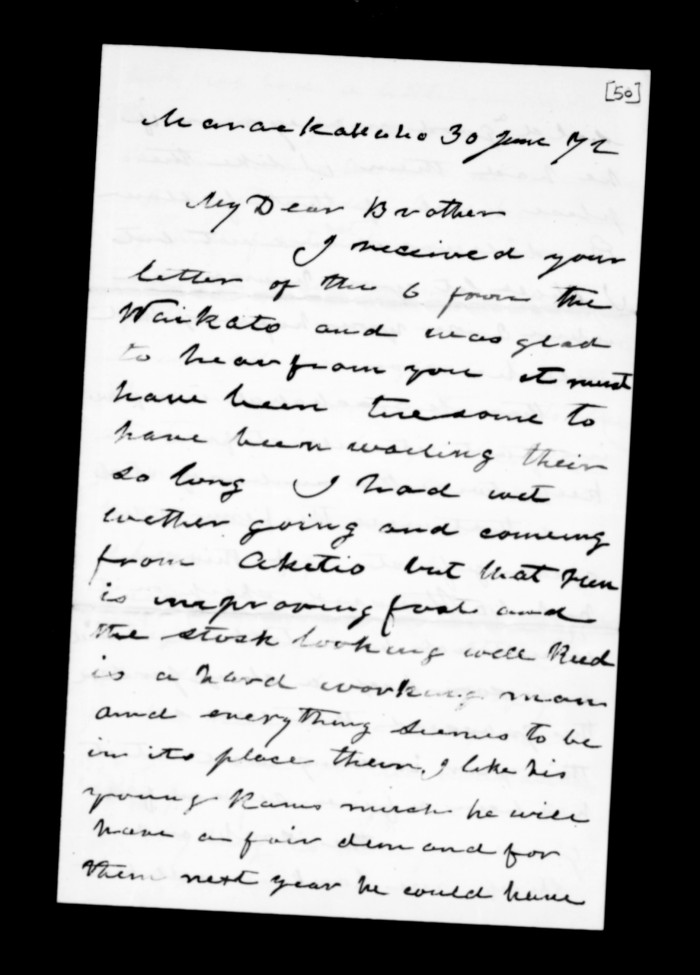 [50]
Maraekakaho 30 June 72
My Dear Brother
I received your
letter of the 6 from the
Waikato and was glad
to hear from you it must
have been tiresome to
have been waiting their
so long I had wet
wether going and comeing
from Aketio but that run
is improving fast and
the stock looking well Reed
is a hard working man
and everything seemes to be
in its place their, I like his
young Rams much he will
have a fair demand for
them next year he could have